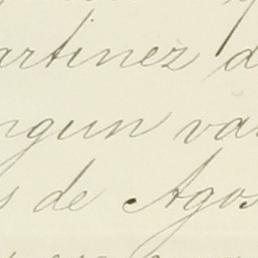 artinez d
ngun va
s de Agos